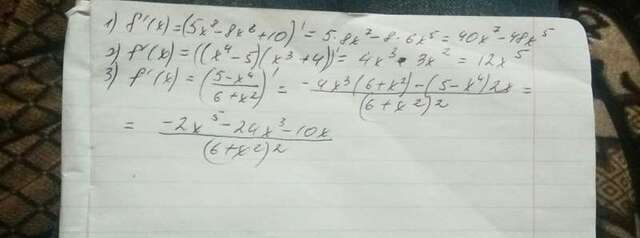 1) f'(x)=(5x⁸-8x⁶+10)'=5·8x⁷-8·6x⁵=40x⁷-48x⁵
2) f'(x)=((x⁴-5)(x³+4))'=4x³·3x²=12x⁵
3) f'(x)=((5-x⁴)/(6+x²))'=(-4x³(6+x²)-(5-x⁴)2x)/(6+x²)²=
=(-2x⁵-24x³-10x)/(6+x²)²